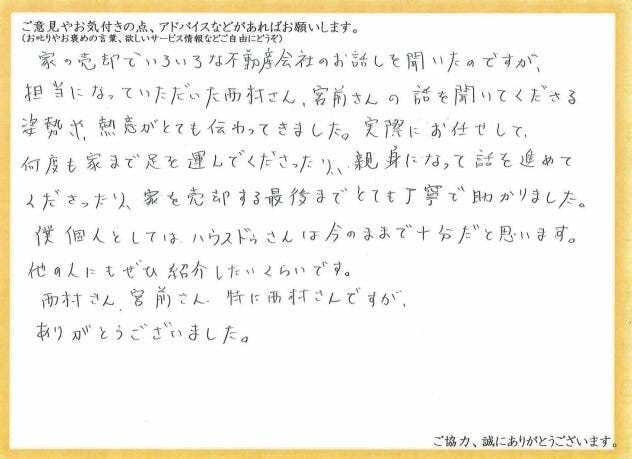 ご意見やお気付きの点、アドバイスなどがあればお願いします。
(お叱りやお褒めの言葉、欲しいサービス情報などご自由にどうぞ)
家の売却でいろいろな不動産会社のお話しを聞いたのですが、
担当になっていただいた西村さん、宮前さんの話を聞いてくださる
姿勢や、熱意がとても伝わってきました。実際にお任せして、
何度も家まで足を運んでくださったり、親身になって話を進めて
くださったり、家を売却する最後までとても丁寧で助かりました。
僕個人としてはハウスドゥさんは今のままで十分だと思います。
他の人にもぜひ紹介したいくらいです。
西村さん、宮前さん、特に西村さんですが、
ありがとうございました。
ご協力、誠にありがとうございます。